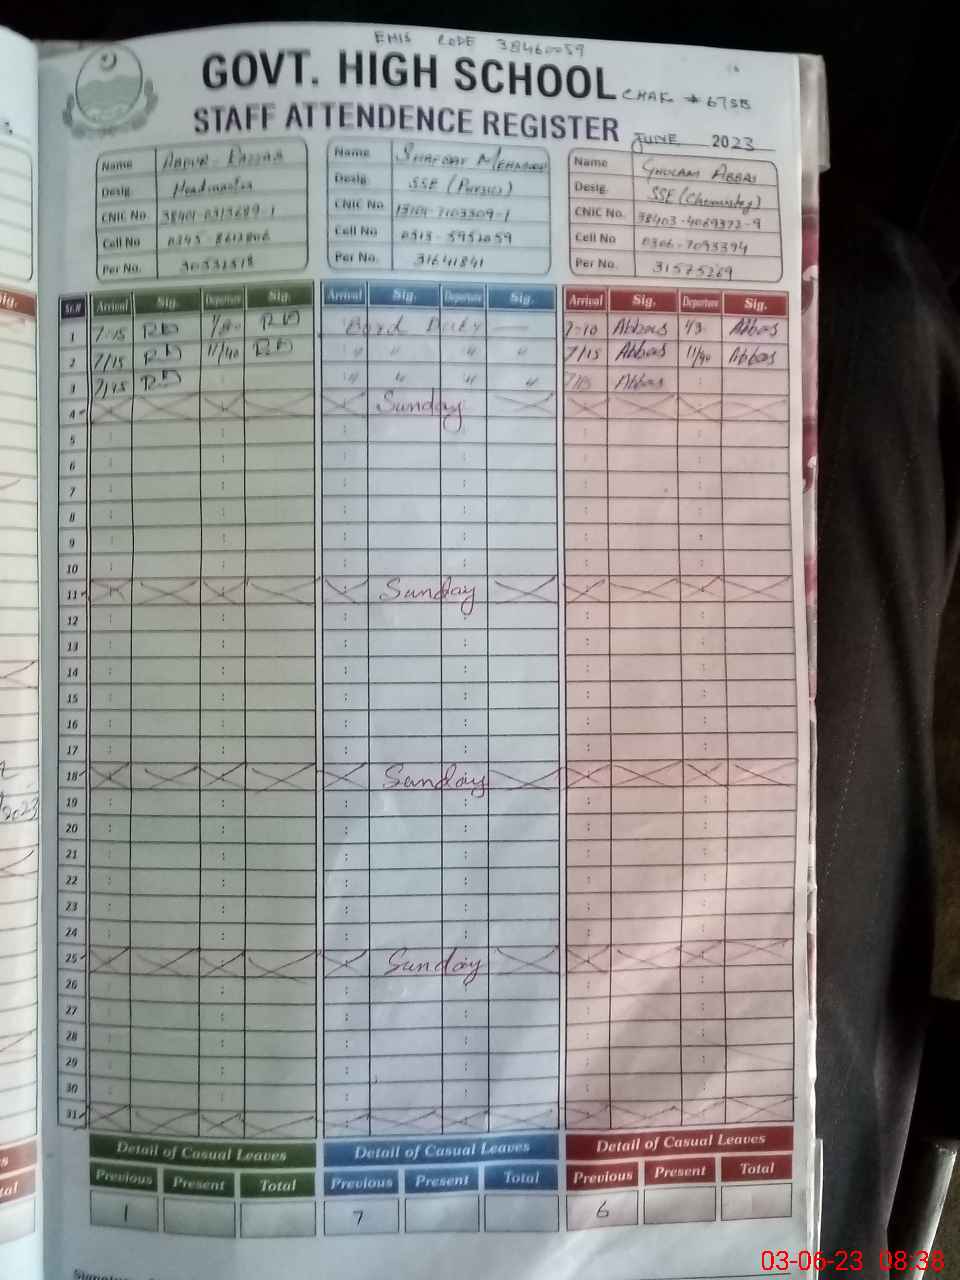 EMIS CODE 38460059
GOVT. HIGH SCHOOL CHAK # 67SB
STAFF ATTENDENCE REGISTER JUNE 2023
Name ABDUR-RAZZAQ
Desig. Headmaster
CNIC No.
Cell No
Per No.
Name
Desig. SSE (Physics)
CNIC No.
Cell No 0313-5952059
Per No. 31641841
Name GHULAM ABBAS
Desig. SSE (Chemistry)
CNIC No. 38403-4069372-9
Cell No 0306-7093394
Per No. 31575269
Sr.# Arrival Sig. Departure Sig. Arrival Sig. Departure Sig. Arrival Sig. Departure Sig.
1 7-15 Bord Duty — 7-10 Abbas Abbas
2 7/15 11/40 " " " " 7/15 Abbas 11/40 Abbas
3 7/15 " " " " 7/15 Abbas
4 Sunday
5
6
7
8
9
10
11 Sunday
12
13
14
15
16
17
18 Sunday
19
20
21
22
23
24
25 Sunday
26
27
28
29
30
31
Detail of Casual Leaves Detail of Casual Leaves Detail of Casual Leaves
Previous Present Total Previous Present Total Previous Present Total
1 7 6
03-06-23 08:38